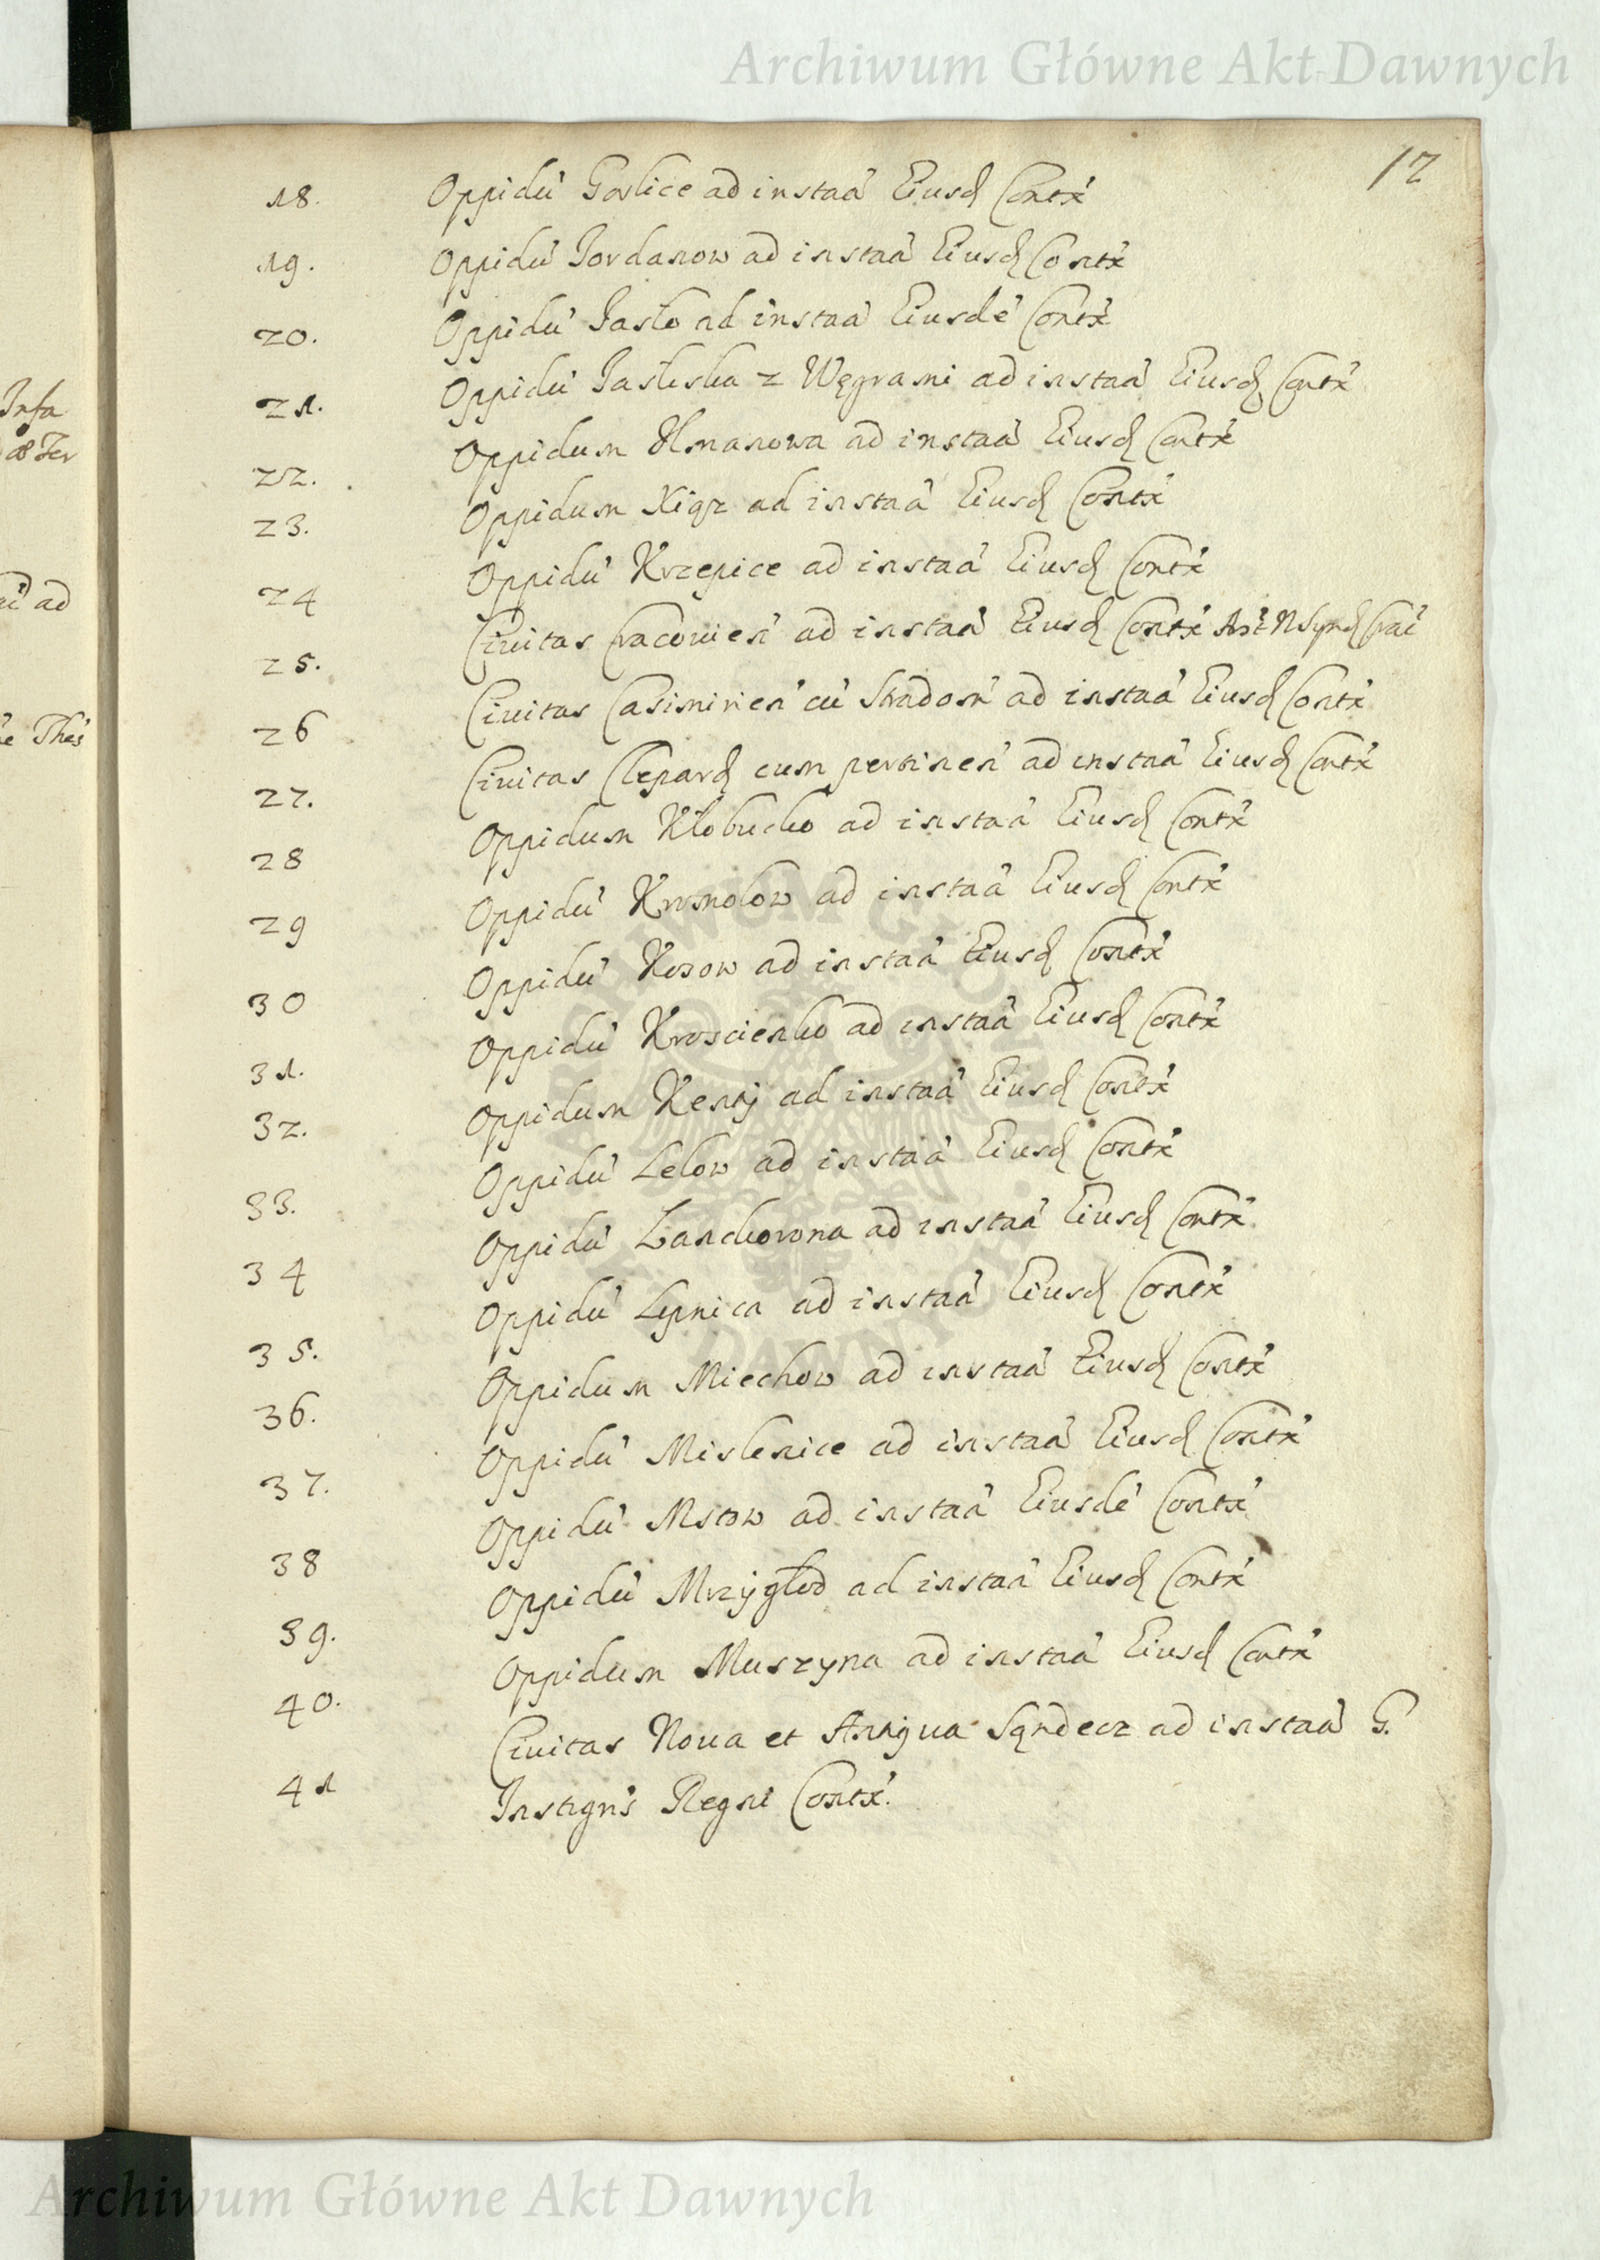 Archiwum Główne Akt Dawnych
12
Infa
& Ter
ad
Thes
18. Oppidu' Gorlice ad instaa' Eiusd Contx'
19. Oppidu' Jordanow ad instaa' Eiusd Contx'
20. Oppidu' Jasło ad instaa' Eiusde' Contx'
21. Oppidu' Jasliska z Węgrami ad instaa' Eiusd Contx'
22. Oppidum Ilmanowa ad instaa' Eiusd Contx'
23. Oppidum Xiąz ad instaa' Eiusd Contx'
24 Oppidu' Krzepice ad instaa' Eiusd Contx'
25. Ciuitas Cracouien' ad instaa' Eiusd Contx' N Synd Crac'
26 Ciuitas Casimirien' cu' Stradom' ad instaa' Eiusd Contx'
27. Ciuitas Clepard cum pertinen' ad instaa' Eiusd Contx'
28 Oppidum Kłobucko ad instaa' Eiusd Contx'
29 Oppidu' Kromolow ad instaa' Eiusd Contx'
30 Oppidu' ad instaa' Eiusd Contx'
31. Oppidu' Kroscienko ad instaa' Eiusd Contx'
32. Oppidum Kenty ad instaa' Eiusd Contx'
33. Oppidu' Lelow ad instaa' Eiusd Contx'
34 Oppidu' Lanckorona ad instaa' Eiusd Contx'
35. Oppidu' Lipnica ad instaa' Eiusd Contx'
36. Oppidum Miechow ad instaa' Eiusd Contx'
37. Oppidu' Mislenice ad instaa' Eiusd Contx'
38 Oppidu' Mstow ad instaa' Eiusde' Contx'
39. Oppidu' Mrzygłod ad instaa' Eiusd Contx'
40. Oppidum Muszyna ad instaa' Eiusd Contx'
41 Ciuitas Noua et Antiqua Sądecz ad instaa' G.
Instign's Regni Contx'.
ARCHIWUM GŁÓWNE AKT DAWNYCH
Archiwum Główne Akt Dawnych